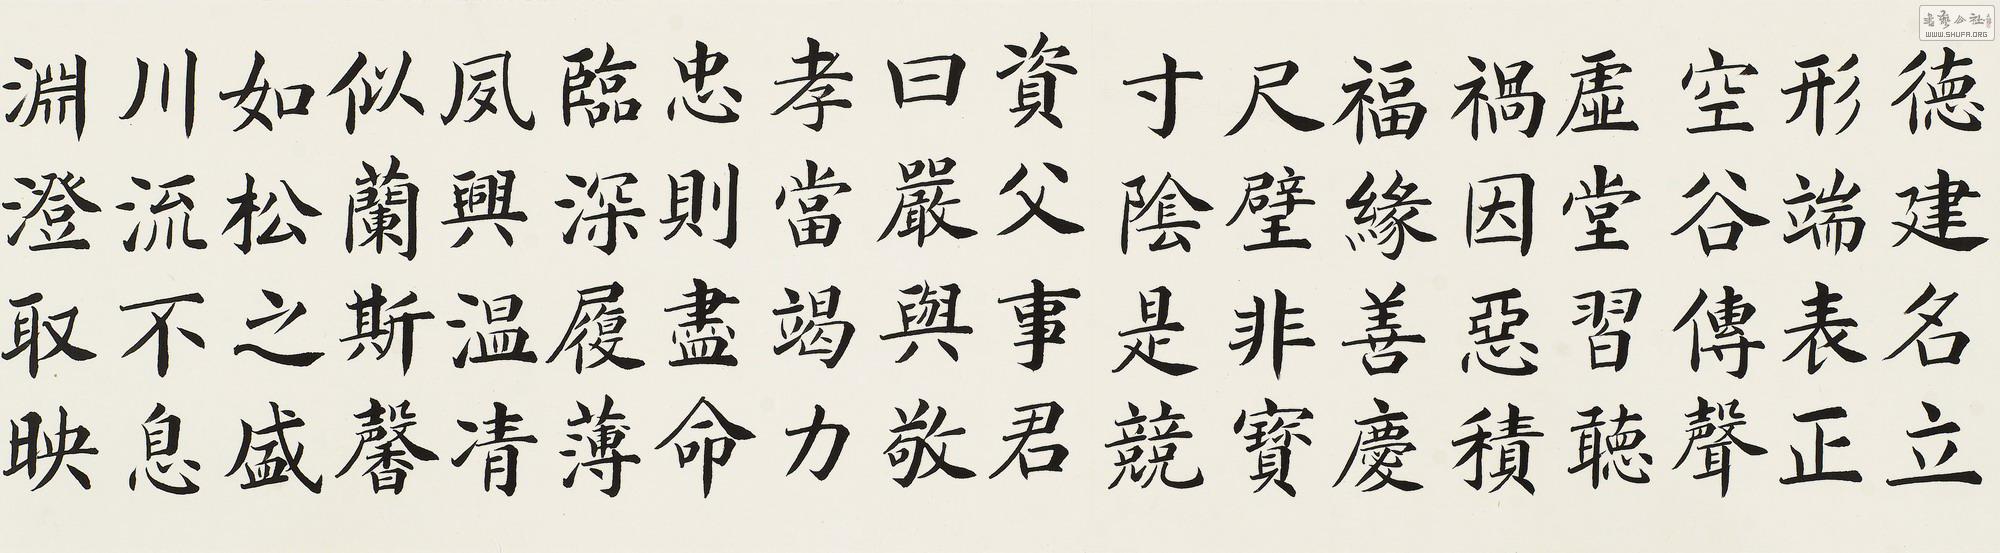 德建名立
形端表正
空谷傳聲
虛堂習聽
禍因惡積
福緣善慶
尺璧非寶
寸陰是競
資父事君
曰嚴與敬
孝當竭力
忠則盡命
臨深履薄
夙興温凊
似蘭斯馨
如松之盛
川流不息
淵澄取映
書藝公社
WWW.SHUFA.ORG